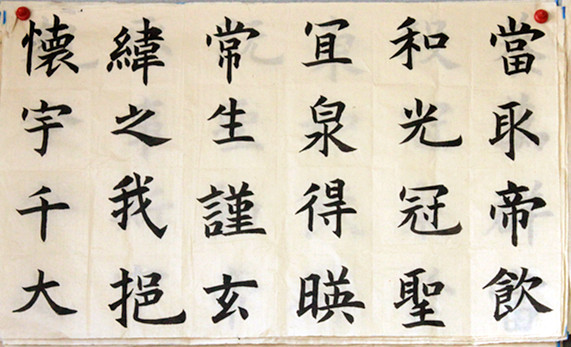 當取帝飲
和光冠聖
冝泉得暎
常生謹玄
緯之我挹
懐宇千大